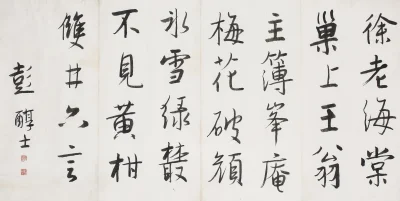 徐老海棠
巢上王翁
主簿峯庵
梅花破顏
氷雪緑叢
不見黃柑
雙井六言
彭醇士